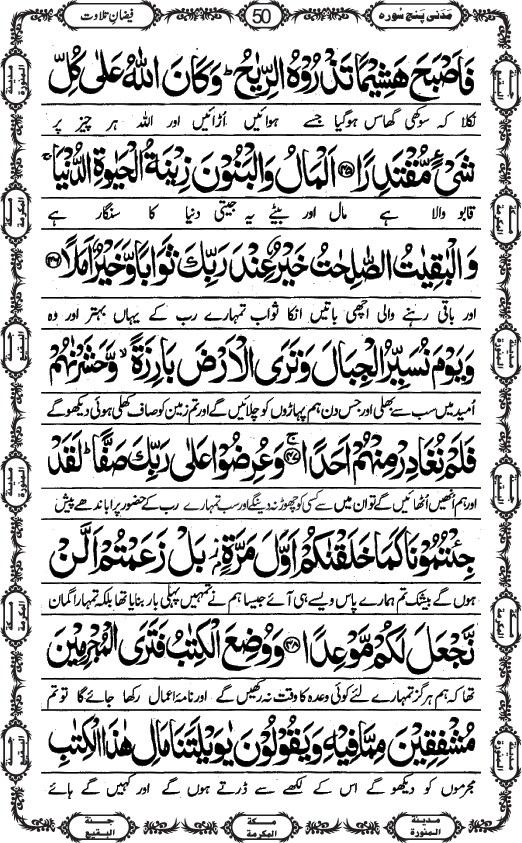 مَدَنی پنج سُورہ
50
فیضانِ تلاوت
فَاَصْبَحَ هَشِیْمًا تَذْرُوْهُ الرِّیٰحُؕ-وَ كَانَ اللّٰهُ عَلٰى كُلِّ
نکلا کہ سوکھی گھاس ہوگیا جسے ہوائیں اُڑائیں اور اللہ ہر چیز پر
شَیْءٍ مُّقْتَدِرًا(۴۵) اَلْمَالُ وَ الْبَنُوْنَ زِیْنَةُ الْحَیٰوةِ الدُّنْیَاۚ-
قابو والا ہے مال اور بیٹے یہ جیتی دنیا کا سنگار ہے
وَ الْبٰقِیٰتُ الصّٰلِحٰتُ خَیْرٌ عِنْدَ رَبِّكَ ثَوَابًا وَّ خَیْرٌ اَمَلًا(۴۶)
اور باقی رہنے والی اچھی باتیں انکا ثواب تمہارے رب کے یہاں بہتر اور وہ
وَ یَوْمَ نُسَیِّرُ الْجِبَالَ وَ تَرَى الْاَرْضَ بَارِزَةًۙ-وَّ حَشَرْنٰهُمْ
اُمید میں سب سے بھلی اور جس دن ہم پہاڑوں کو چلائیں گے اور تم زمین کو صاف کھلی ہوئی دیکھو گے
فَلَمْ نُغَادِرْ مِنْهُمْ اَحَدًاۚ(۴۷) وَ عُرِضُوْا عَلٰى رَبِّكَ صَفًّاؕ-لَقَدْ
اور ہم انھیں اٹھائیں گے تو ان میں سے کسی کو چھوڑ نہ دینگے اور سب تمہارے رب کے حضور پرا باندھے پیش
جِئْتُمُوْنَا كَمَا خَلَقْنٰكُمْ اَوَّلَ مَرَّةٍۭ٘-بَلْ زَعَمْتُمْ اَلَّنْ
ہوں گے بیشک تم ہمارے پاس ویسے ہی آئے جیسا ہم نے تمہیں پہلی بار بنایا تھا بلکہ تمہارا گمان
نَّجْعَلَ لَكُمْ مَّوْعِدًا(۴۸) وَ وُضِعَ الْكِتٰبُ فَتَرَى الْمُجْرِمِیْنَ
تھا کہ ہم ہرگز تمہارے لئے کوئی وعدہ کا وقت نہ رکھیں گے اور نامۂ اعمال رکھا جائے گا تو تم
مُشْفِقِیْنَ مِمَّا فِیْهِ وَ یَقُوْلُوْنَ یٰوَیْلَتَنَا مَالِ هٰذَا الْكِتٰبِ
مجرموں کو دیکھو گے اس کے لکھے سے ڈرتے ہوں گے اور کہیں گے ہائے
مدینۃ المنورۃ
مکۃ المکرمۃ
جنۃ البقیع